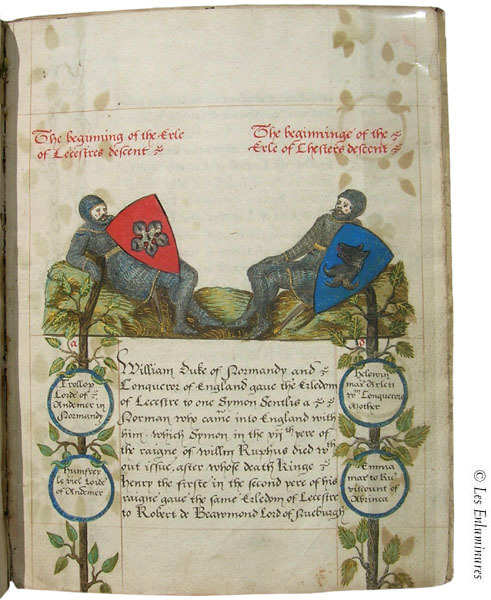 The beginning of the Erle
of Lecestres descent
The beginninge of the
Erle of Chesters descent
a
William Duke of Normandy and
Conqueror of England gaue the Erledom
of Lecestre to one Symon Sentlis a
Norman who came into England with
him. which Symon in the vijth yere of
the raigne of willm Ruphus died wth
out issue, after whose death Kinge
henry the firste in the second yere of his
raigne gaue the same Erledom of Lecestre
to Robert de Beawmond Lord of Nueburgh
Trollop
Lorde of
Andemer in
Normandy
humfrey
le viel Lorde
of Andemer
Helewin
mar
wm Conquerors
Mother
Emma
mar to Ric
viscount of
Abrinca
© Les Enluminures